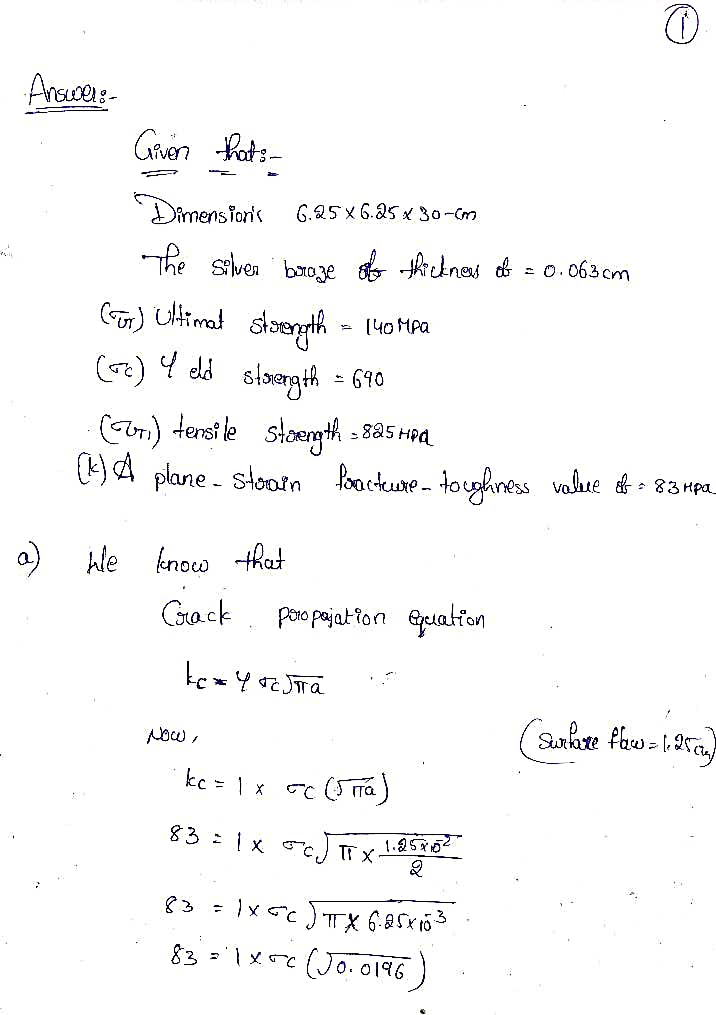 1
Answer:-
Given that:-
Dimension's 6.25 x 6.25 x 30-cm
The silver braze of thickness of = 0.063cm
(σUT) Ultimat strength = 140 MPa
(σc) Yeld strength = 690
(σUT1) tensile strength = 825 MPa
(k) A plane-strain fracture-toughness value of = 83 MPa
a) We know that
Crack propojation equation
kc = Y σc √πa
Now, (Surface flaw = 1.25cm)
kc = 1 x σc (√πa)
83 = 1 x σc √π x 1.25x10⁻²/2
83 = 1 x σc √π x 6.25x10⁻³
83 = 1 x σc (√0.0196)